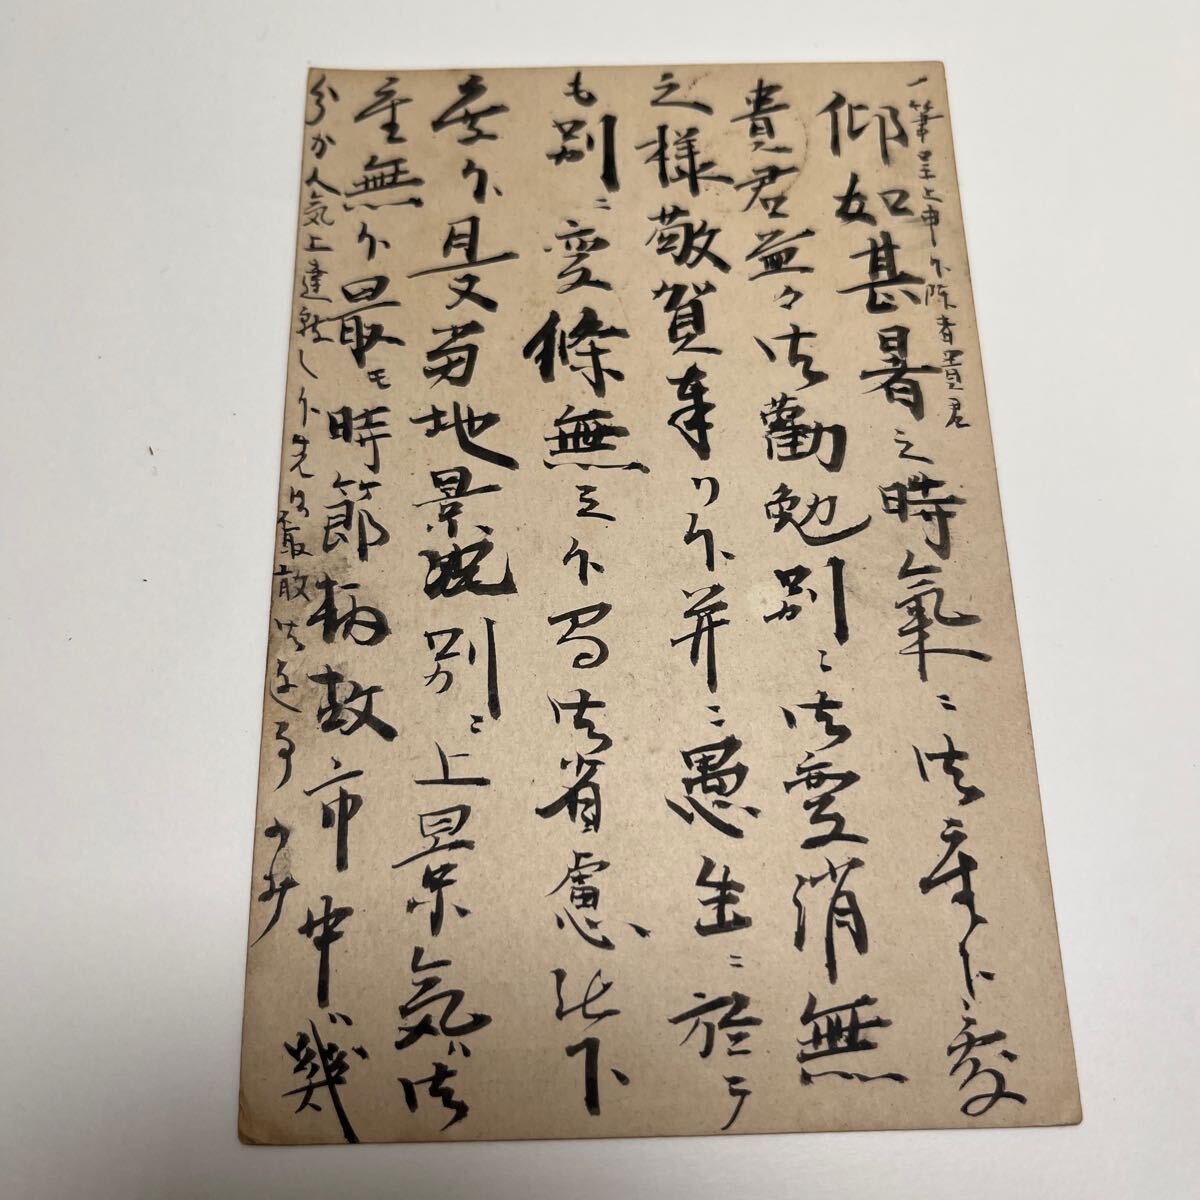 一筆呈上申候陳者貴君
仰如甚暑之時氣ニ御座候処
貴君益々御勸勉別ニ御変消無
之様敬賀奉リ候并ニ愚生ニ於テ
も別ニ変條無之候間御省慮被下
度候且又当地景況別ニ上景気ハ御
座無候最モ時節柄故市中ハ幾
分か人気上達致し候先は